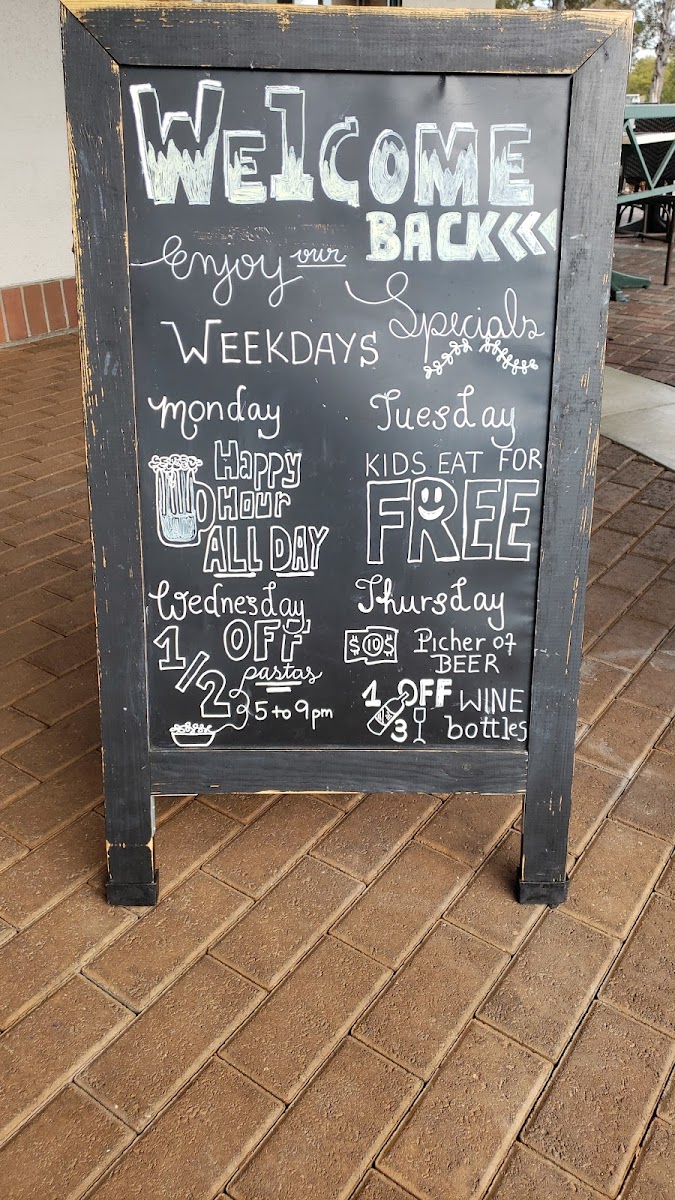 WelCOME
BACK<<<
Enjoy our
Specials
WEEKDAYS
Monday
Happy
Hour
ALL DAY
Tuesday
KIDS EAT FOR
FREE
Wednesday
1/2 OFF
pastas
5 to 9pm
Thursday
$10$ Picher of
BEER
1/3 OFF WINE
bottles